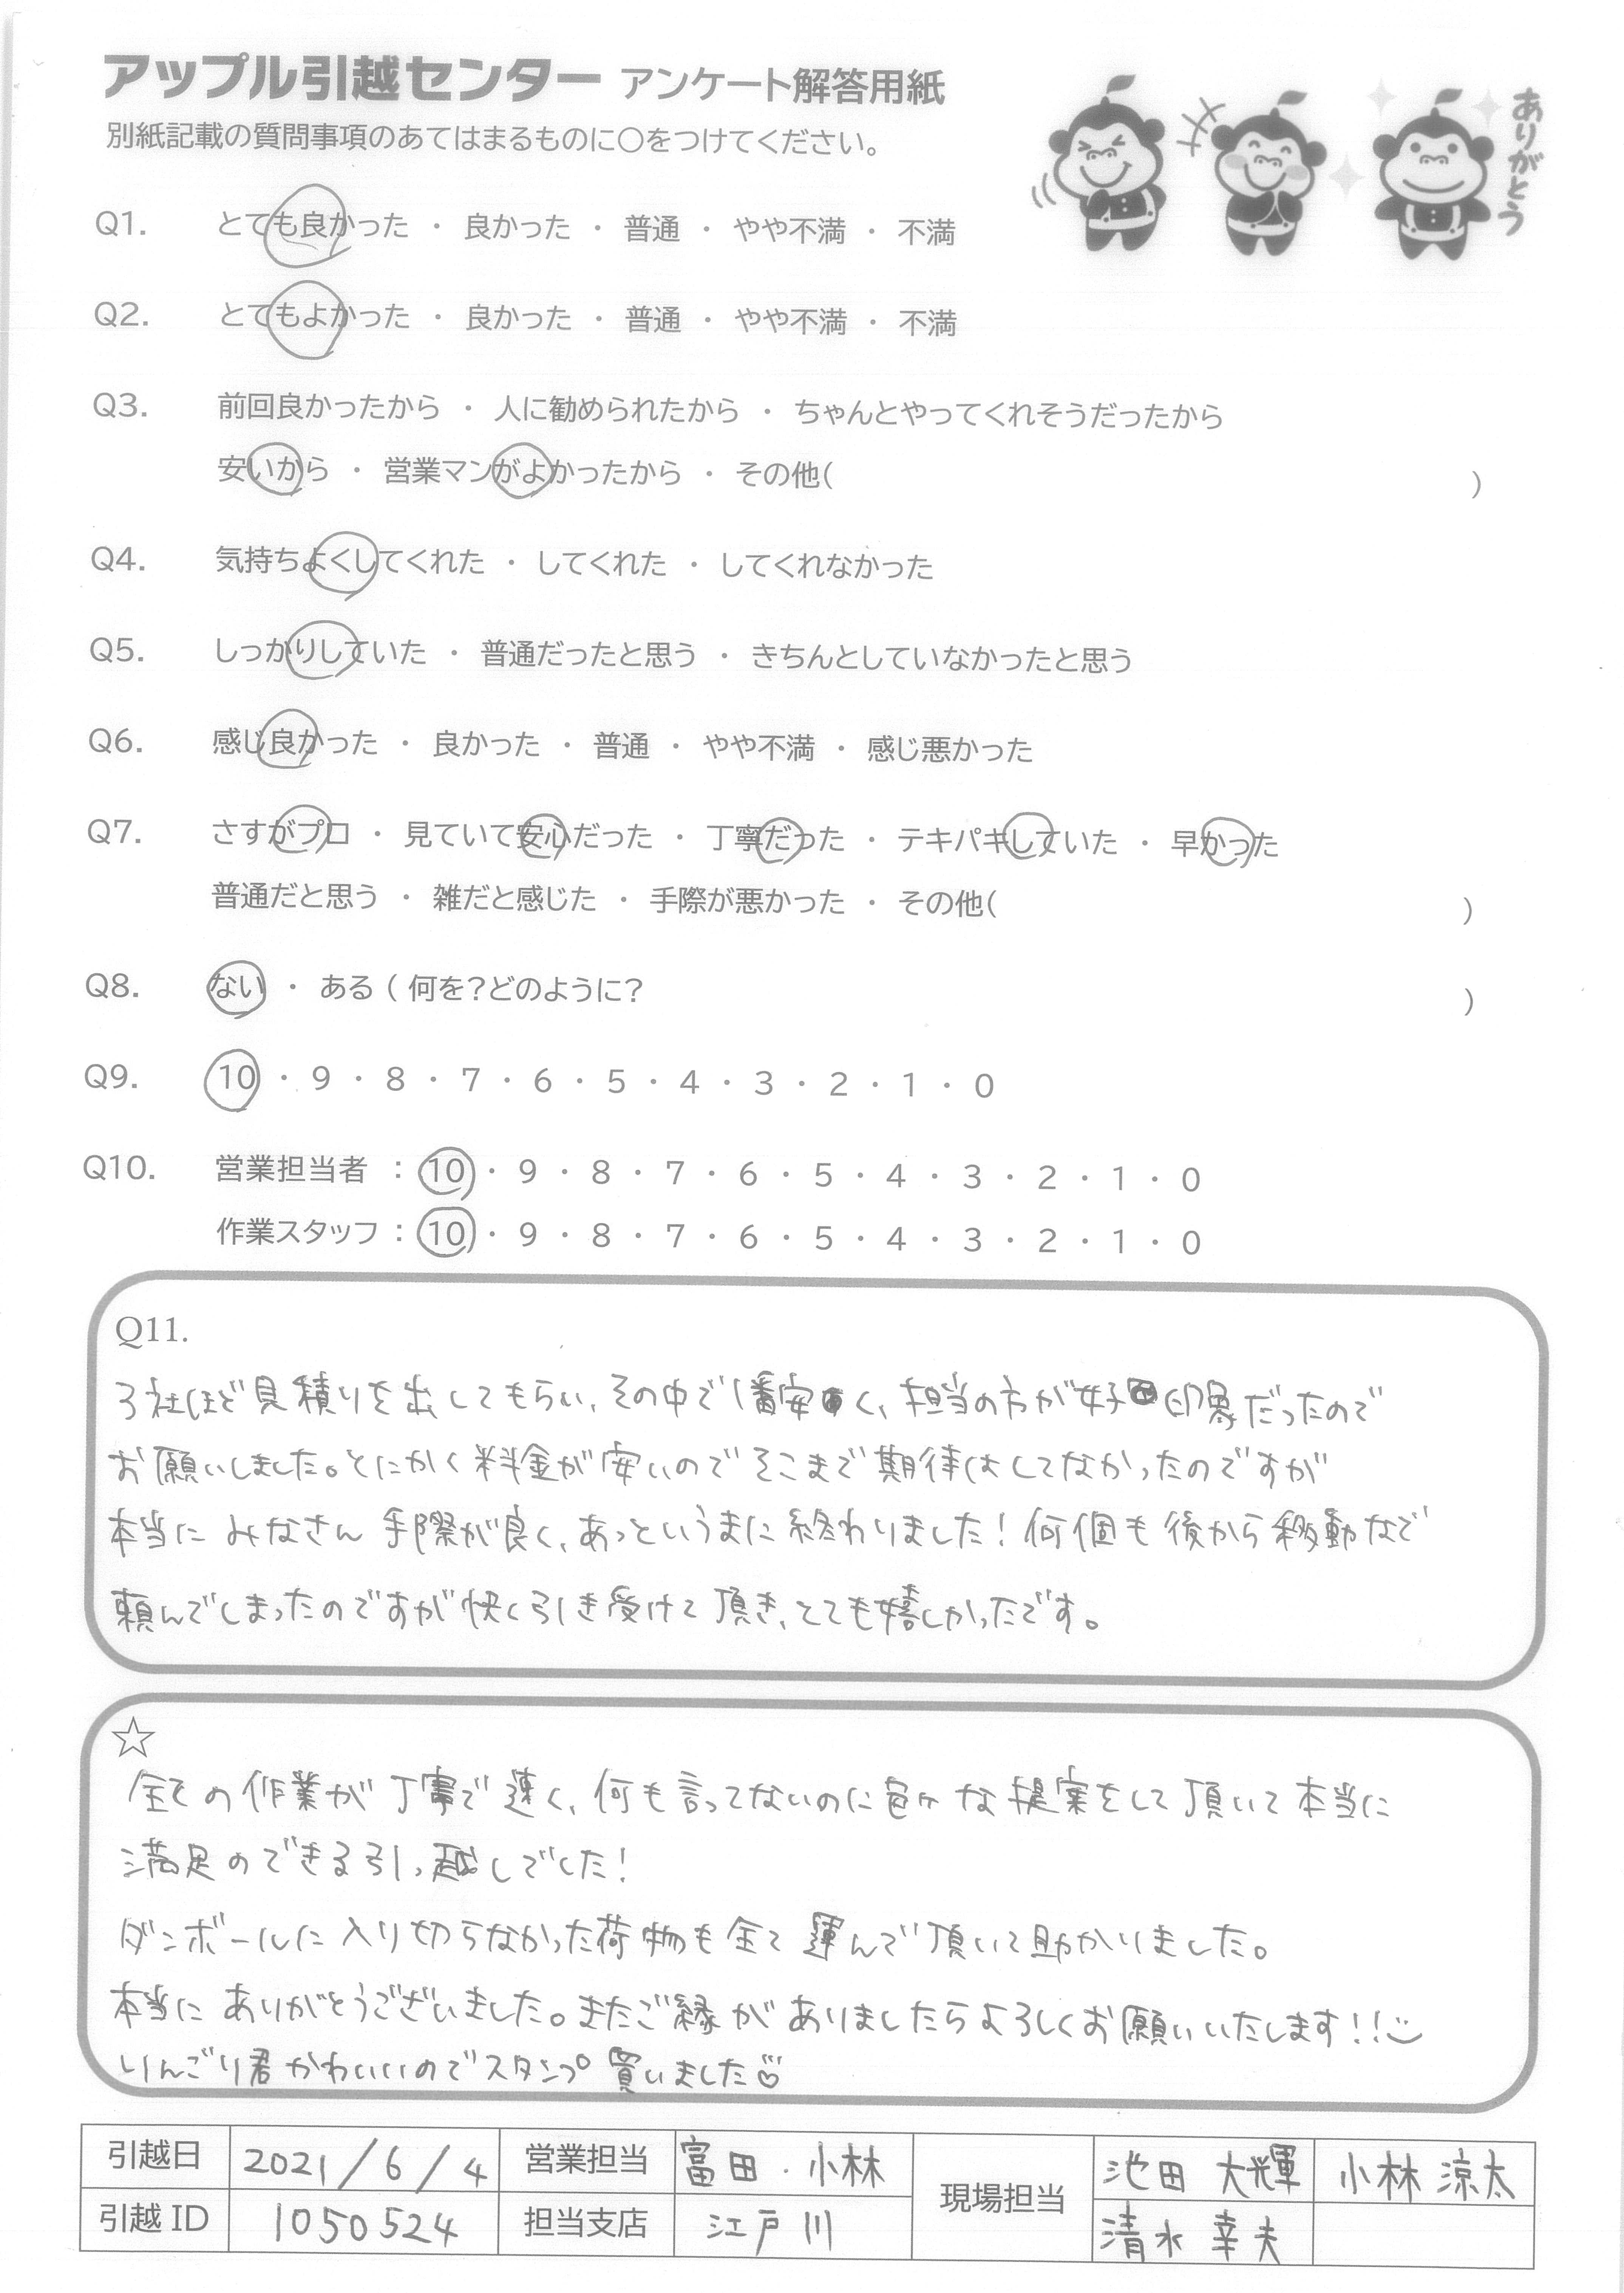 アップル引越センター アンケート解答用紙
ありがとう
別紙記載の質問事項のあてはまるものに〇をつけてください。
Q1. とても良かった ・ 良かった ・ 普通 ・ やや不満 ・ 不満
Q2. とてもよかった ・ 良かった ・ 普通 ・ やや不満 ・ 不満
Q3. 前回良かったから ・ 人に勧められたから ・ ちゃんとやってくれそうだったから
安いから ・ 営業マンがよかったから ・ その他( )
Q4. 気持ちよくしてくれた ・ してくれた ・ してくれなかった
Q5. しっかりしていた ・ 普通だったと思う ・ きちんとしていなかったと思う
Q6. 感じ良かった ・ 良かった ・ 普通 ・ やや不満 ・ 感じ悪かった
Q7. さすがプロ ・ 見ていて安心だった ・ 丁寧だった ・ テキパキしていた ・ 早かった
普通だと思う ・ 雑だと感じた ・ 手際が悪かった ・ その他( )
Q8. ない ・ ある ( 何を?どのように? )
Q9. 10 ・ 9 ・ 8 ・ 7 ・ 6 ・ 5 ・ 4 ・ 3 ・ 2 ・ 1 ・ 0
Q10. 営業担当者 : 10 ・ 9 ・ 8 ・ 7 ・ 6 ・ 5 ・ 4 ・ 3 ・ 2 ・ 1 ・ 0
作業スタッフ : 10 ・ 9 ・ 8 ・ 7 ・ 6 ・ 5 ・ 4 ・ 3 ・ 2 ・ 1 ・ 0
Q11.
3社ほど見積りを出してもらい、その中で1番安く、担当の方が好印象だったので
お願いしました。とにかく料金が安いのでそこまで期待はしてなかったのですが
本当にみなさん手際が良く、あっというまに終わりました!何個も後から移動なで
頼んでしまったのですが快く引き受けて頂き、とても嬉しかったです。
☆
全ての作業が丁寧で速く、何も言ってないのに色々な提案をして頂いて本当に
満足のできる引っ越しでした!
ダンボールに入り切らなかった荷物も全て運んで頂いて助かりました。
本当にありがとうございました。またご縁がありましたらよろしくお願いいたします!!
りんごり君かわいいのでスタンプ買いました
引越日 2021/6/4 営業担当 富田・小林 現場担当 池田 大輝 小林 涼太
引越 ID 1050524 担当支店 江戸川 清水 幸夫